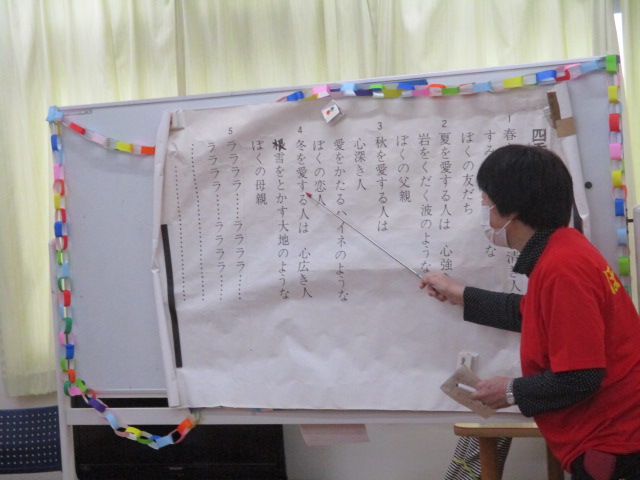 四
1 春 清 人
する な
ぼくの友だち
2 夏を愛する人は 心強
岩をくだく波のような
ぼくの父親
3 秋を愛する人は
心深き人
愛をかたるハイネのような
ぼくの恋人
4 冬を愛する人は 心広き人
根雪をとかす大地のような
ぼくの母親
5 ララララ……ララララ……
ララララ……ララララ……